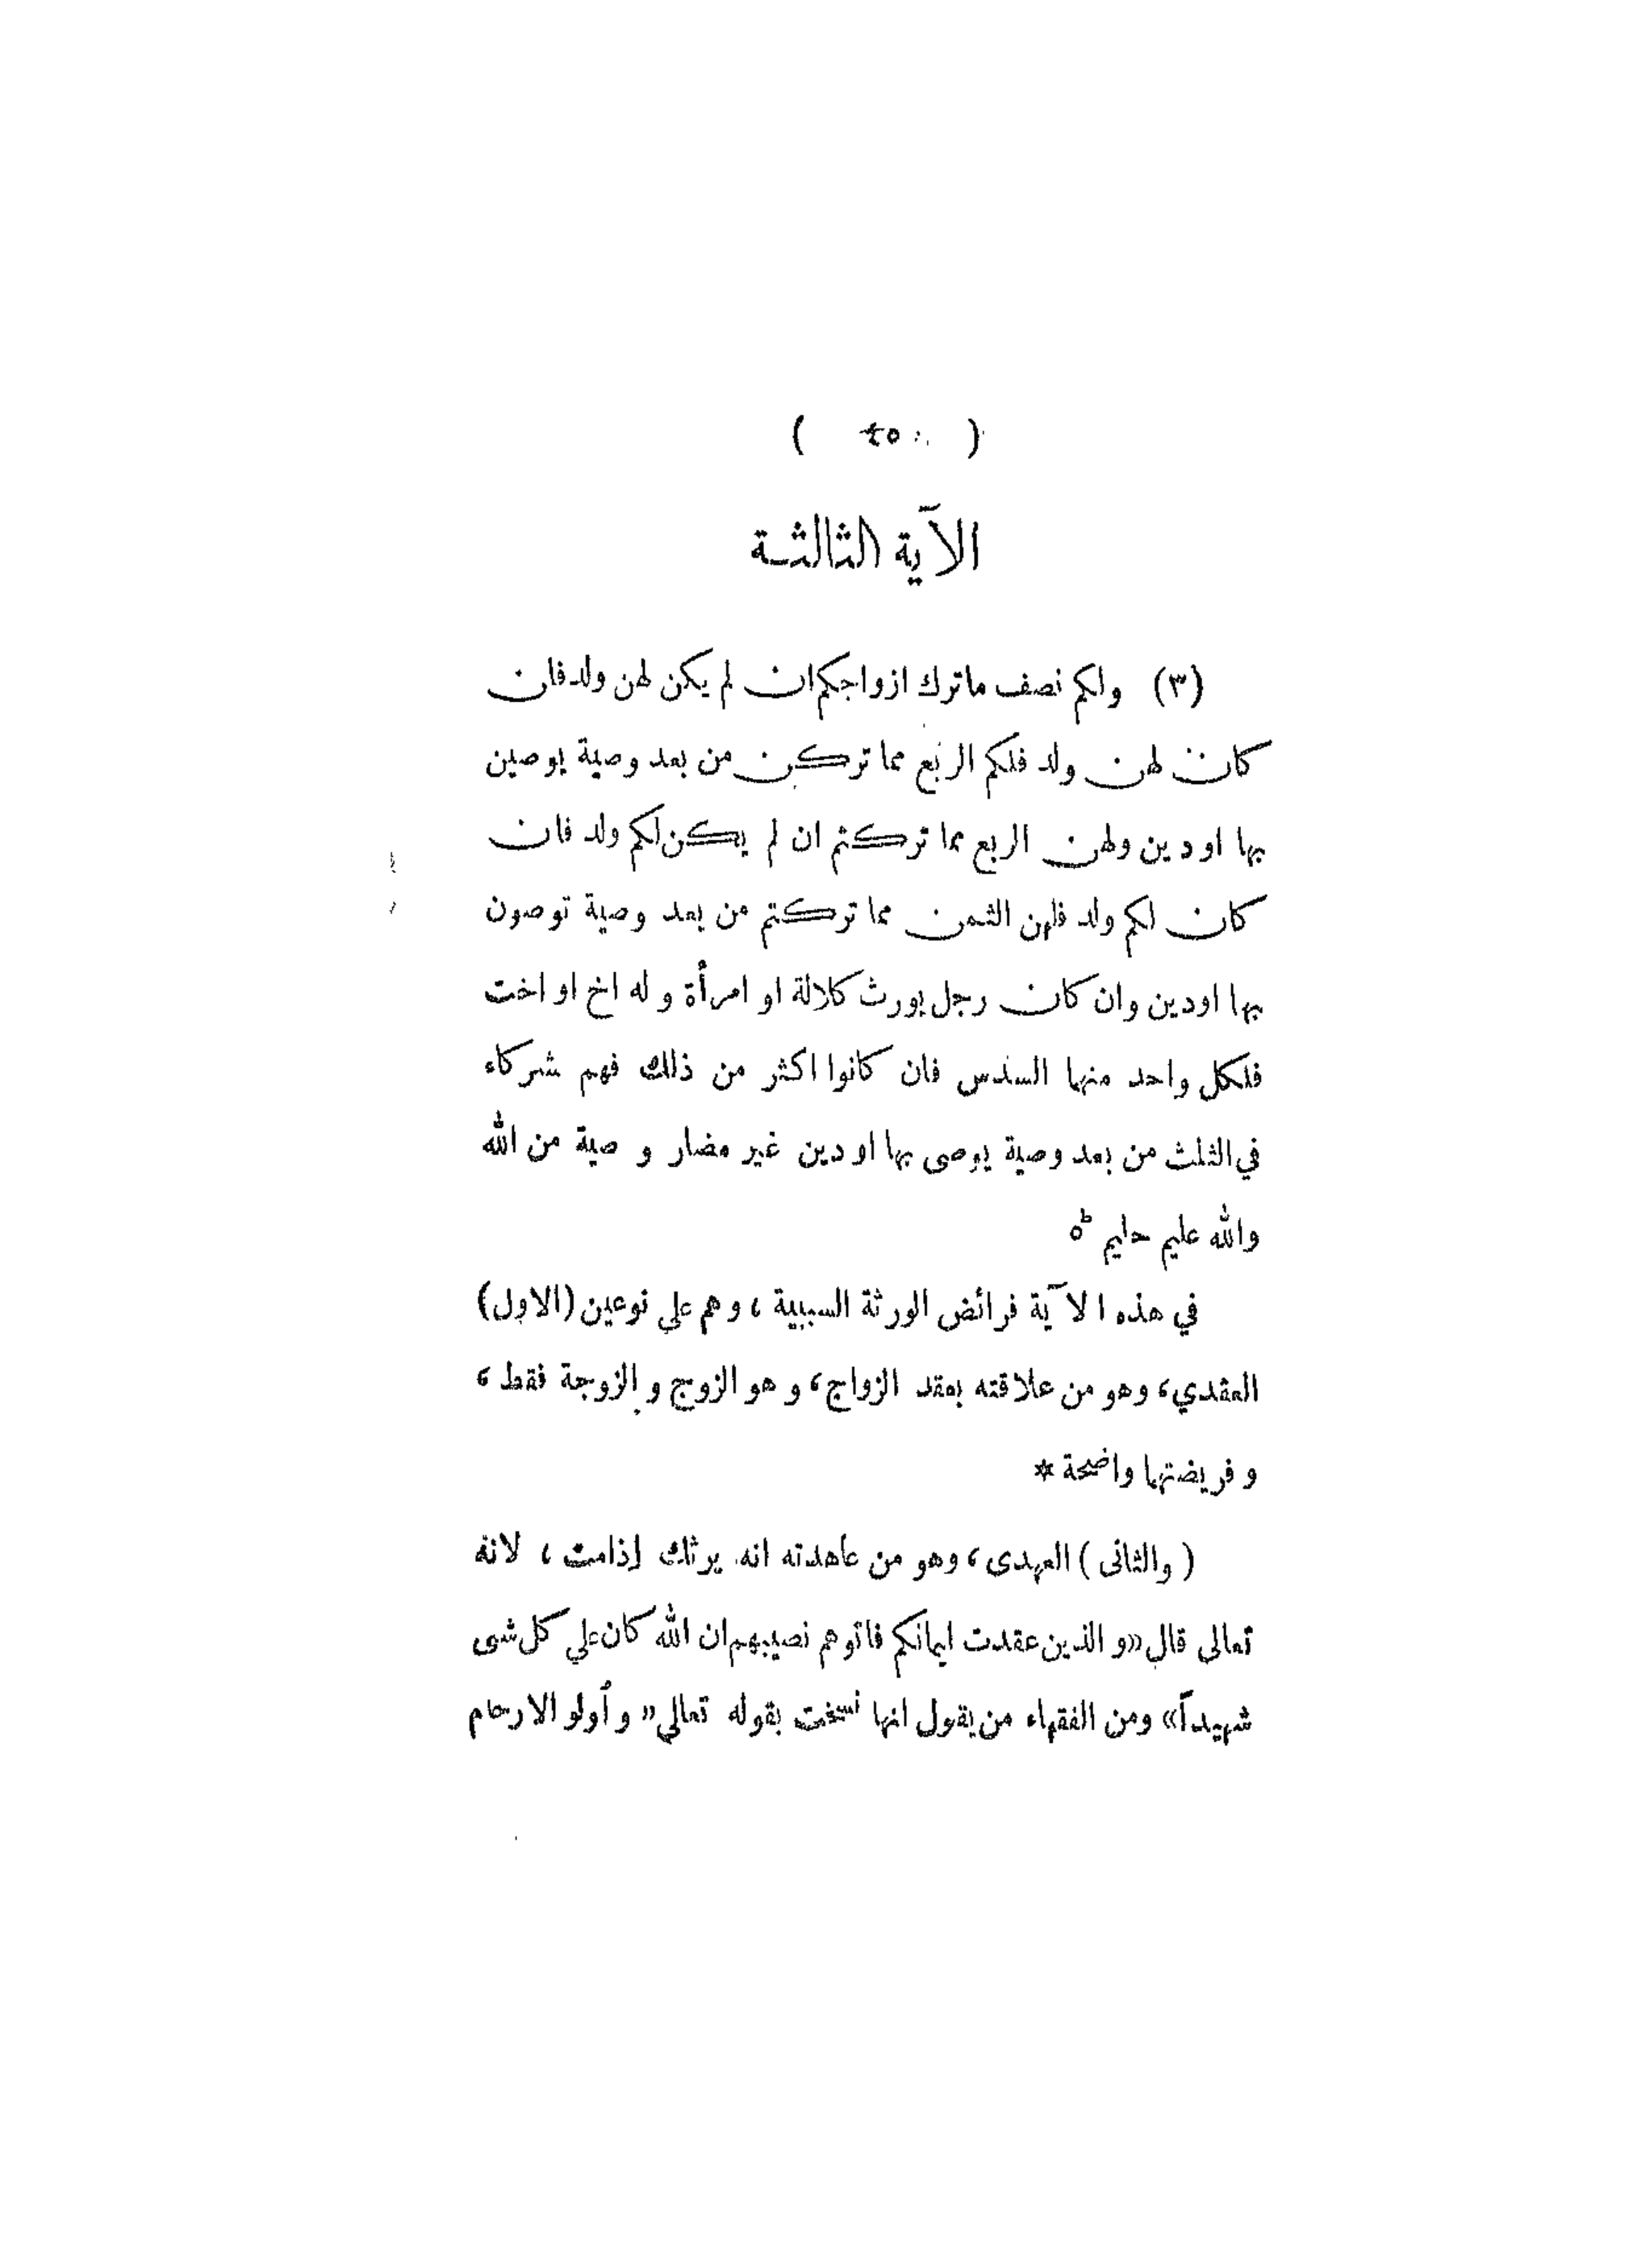 الآية الثالثة
(٣) ولكم نصف ماترك ازواجكم ان لم يكن لهن ولد فان
كان لهن ولد فلكم الربع مما تركن من بعد وصية يوصين
بها او دين ولهن الربع مما تركتم ان لم يكن لكم ولد فان
كان لكم ولد فلهن الثمن مما تركتم من بعد وصية توصون
بها اودين وان كان رجل يورث كلالة او امرأة وله اخ او اخت
فلكل واحد منهما السدس فان كانوا اكثر من ذلك فهم شركاء
في الثلث من بعد وصية يوصى بها او دين غير مضار وصية من الله
والله عليم حليم ط٥
في هذه الآية فرائض الورثة السببية ، وهم علي نوعين (الاول)
العقدي، وهو من علاقته بعقد الزواج، و هو الزوج والزوجة فقط ،
و فريضتهما واضحة *
( والثانى ) العهدى ، وهو من عاهدته انه يرثك إذامت ، لانه
تعالى قال «و الذين عقدت ايمانكم فاتوهم نصيبهم ان الله كان علي كل شى
شهيداً» ومن الفقهاء من يقول انها نسخت بقوله تعالي « و أولو الارحام